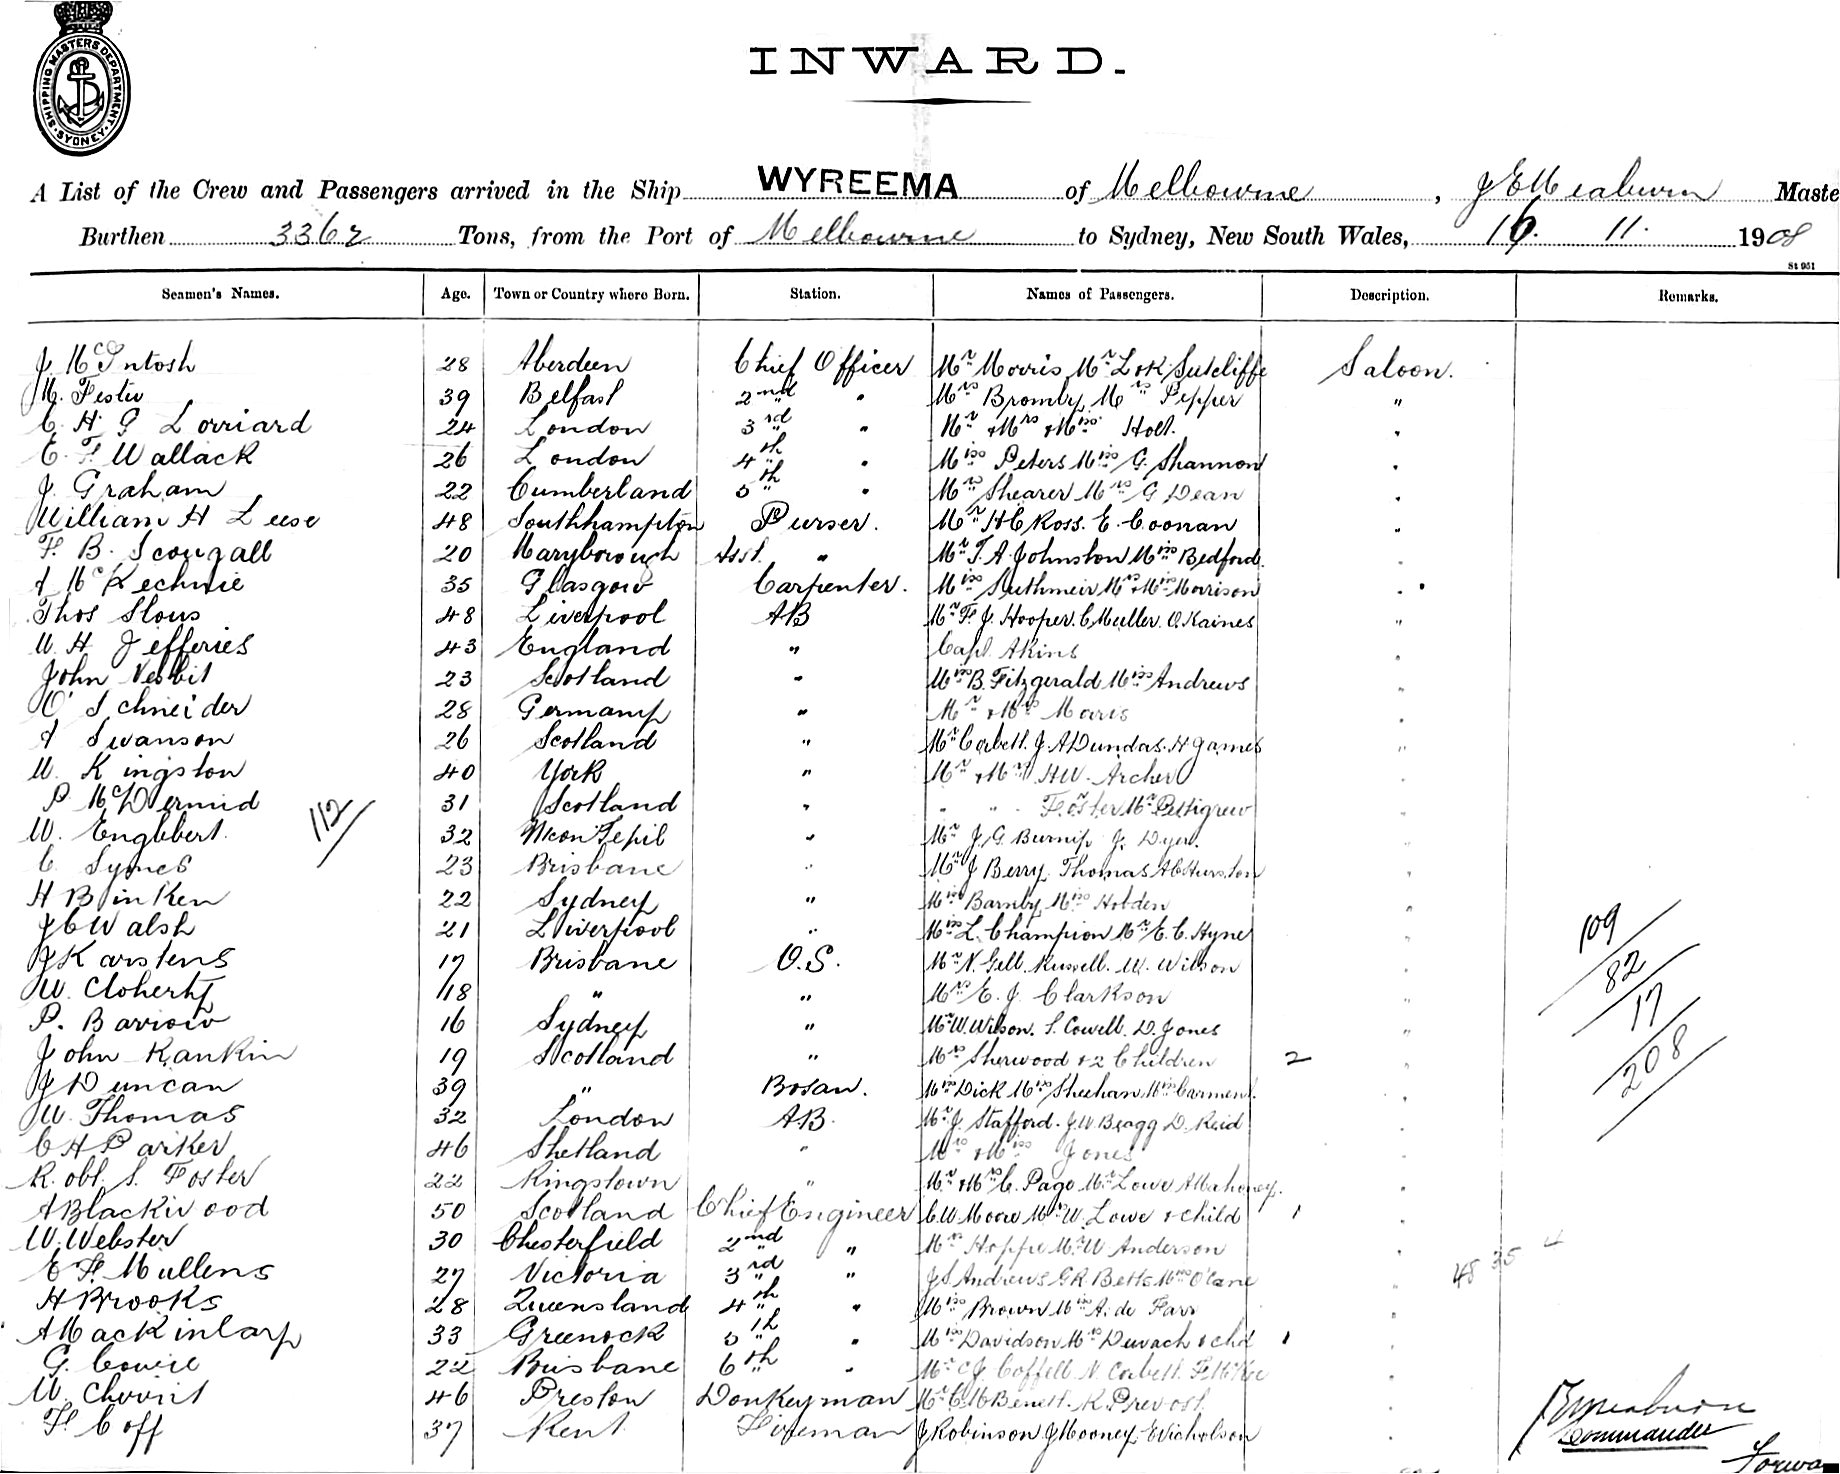 SHIPPING MASTERS DEPARTMENT. SYDNEY
INWARD.
A List of the Crew and Passengers arrived in the Ship WYREEMA of Melbourne, J E Meaburn Maste
Burthen 3362 Tons, from the Port of Melbourne to Sydney, New South Wales, 16. 11. 1908
St 951
Seamen's Names. Age. Town or Country where Born. Station. Names of Passengers. Description. Remarks.
J. McIntosh 28 Aberdeen Chief Officer Mr Morris Mr Lok Sutcliffe Saloon.
M. Festu 39 Belfast 2nd " Mrs Bromby Mrs Pepper "
C. H. G Lorriard 24 London 3rd " Mr & Mrs & Miss Holt. "
E. F Wallack 26 London 4th " Miss Peters Miss G. Shannon "
J. Graham 22 Cumberland 5th " Mrs Shearer Mrs G Dean "
William H Leese 48 Southhampton Purser. Mr H C Ross. E. Coonan "
F. B. Scougall 20 Maryborough Asst. " Mr T. A. Johnston Miss Bedford. "
A McKechnie 35 Glasgow Carpenter. Miss Mrs & Miss Morrison "
Thos Slous 48 Liverpool AB Mr F. J. Hooper. C Muller. O. Kaines "
W. H. Jefferies 43 England " Capt. Akins "
John Nesbit 23 Scotland " Miss B. Fitzgerald Miss Andrews "
O' Schneider 28 Germany " Mr & Mrs Morris "
A Swanson 26 Scotland " Mr Corbett. J. A Dundas. H games "
W. Kingston 40 York " Mr & Mrs H W. Archer "
P. McDermid 31 Scotland " " " Foster Mr Pettigrew "
112
W. Englebert. 32 " Mr J. G. Burnip J. Dyer. "
C. Symes 23 Brisbane " Mr J Berry. Thomas A C Hurston "
H Binken 22 Sydney " Miss Barnby Miss Holden "
J C Walsh 21 Liverpool " Miss L. Champion Mr E. C. Hyne "
J Karstens 17 Brisbane O.S. Mr N. Gell. Russell. W. Wilson "
W. Cloherty 18 " " Mrs E. J. Clarkson "
P. Barrow 16 Sydney " Mr W. Wilson. S. Cowell. D. Jones "
John Rankin 19 Scotland " Mrs Sherwood & 2 Children 2 "
J Duncan 39 " Bosan. Miss Dick Miss Sheehan Miss Carment. "
W. Thomas 32 London AB. Mr J. Stafford. J. W Bragg D. Reid "
C H Parker 46 Shetland " Mrs & Miss Jones "
Robt. S. Foster 22 Kingstown " Mr & Mrs C. Page Mr Lowe A Mahoney. "
A Blackwood 50 Scotland Chief Engineer C. W Moore Mrs W. Lowe & child 1 "
W. Webster 30 Chesterfield 2nd " Mrs Hoppe Mr W Anderson "
E F. Mullens 27 Victoria 3rd " J S Andrews G R Betts Miss O'Cane "
H Brooks 28 Queensland 4th " Miss Brown Miss A. de Farr "
A Mackinlay 33 Greenock 5th " Miss Davidson Mrs Duvach & chd 1 "
G. Cowie 22 Brisbane 6th " Mr C J. Coffell N. Corbett. "
W. 46 Preston Donkeyman Mr C. M Benett. R. Prevost. "
F. Goff 37 Kent Fireman J Robinson J Mooney E Nicholson
109
82
17
208
48 35 4
J E Meaburn
Commander